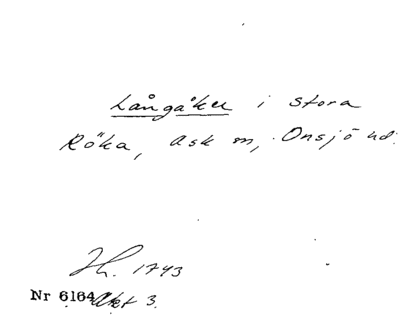 Långåker i stora
Röka, Ask sn, Onsjö hd.
Jh. 1743
Nr 6164 Akt 3.